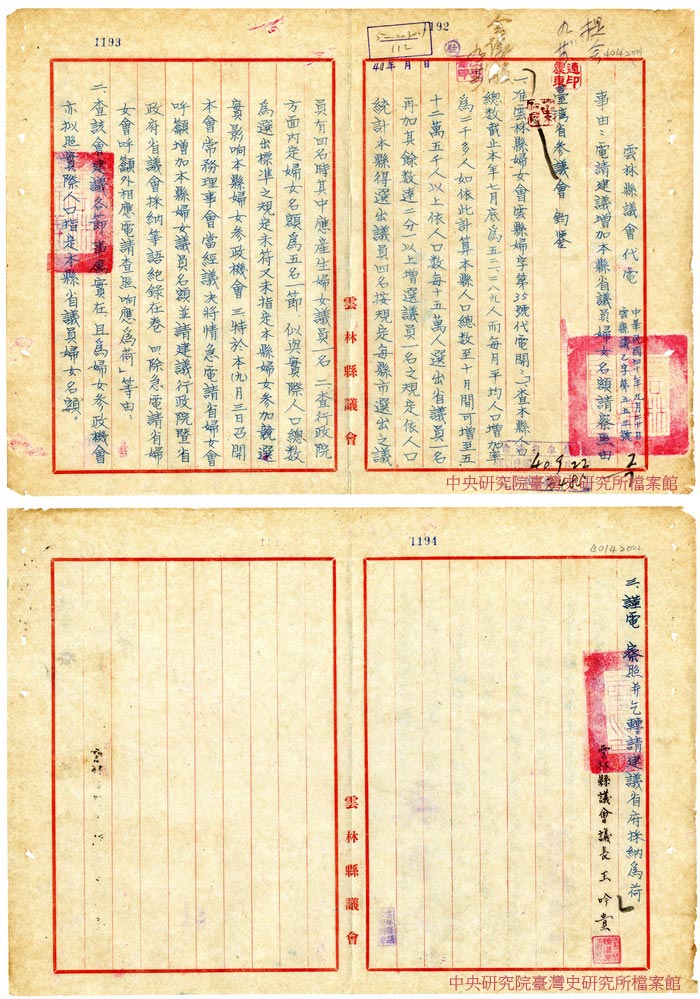 1192
雲林縣議會代電
中華民國四十年九月二十日
雲縣議乙字第五五二號
事由：電請建議增加本縣省議員婦女名額請察照由
臺灣省參議會 鈞鑒
一、准雲林縣婦女會雲縣婦字第35號代電開：「查本縣人口
總數截止本年七月底為五二、二八九人而每月平均人口增加率
為二千多人如依此計算本縣人口總數至十月間可增至五
十二萬五千人以上依人口數每十五萬人選出省議員一名
再加其餘數達二分一以上增選議員一名之規定依人口
統計本縣得選出議員四名按規定每縣市選出之議
40.9.22
40年 月 日
112
提會
40142001
1193
員有四名時其中應產生婦女議員一名 二查行政院
方面內定婦女名額為五名一節 似與實際人口總數
為選出標準之規定未符又未指定本縣婦女參加競選
實影响本縣婦女參政機會 三特於本(九)月三日召開
本會常務理事會當經議决將情急電請省婦女會
呼籲增加本縣婦女議員名額並請建議行政院暨省
政府省議會採納等語紀錄在卷 四除急電請省婦
女會呼籲外相應電請查照响應為荷」等由：
二、查該會建議各節 事屬實在 且為婦女參政機會
亦拟照實際人口指定本縣省議員婦女名額。
雲林縣議會
中央研究院臺灣史研究所檔案館
1194
三、謹電 察照并乞轉請建議省府採納為荷
雲林縣議會議長 王吟貴
雲林縣議會
中央研究院臺灣史研究所檔案館